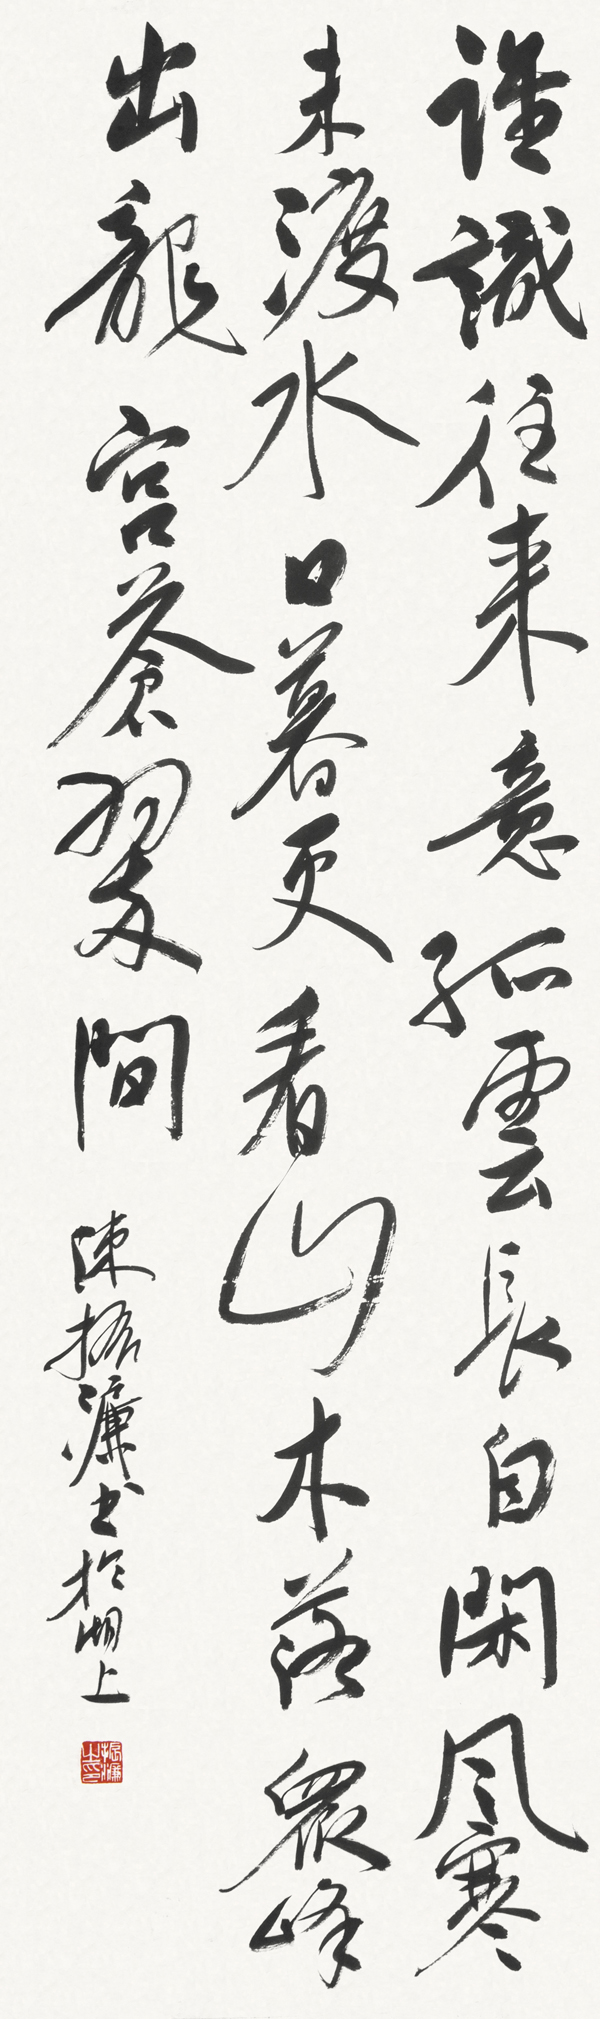 誰識往來意孤雲長自閑风寒
未渡水日暮更看山木落衆峰
出龍宮蒼翠間
陳振濂书於湖上
振濂之印